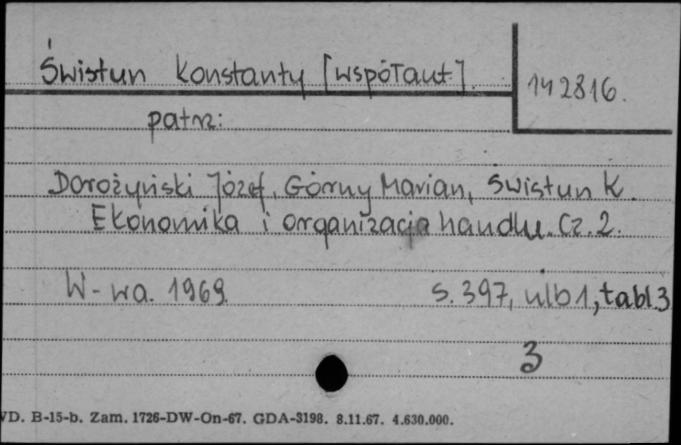 Świstun Konstanty [współaut.]
142816.
patrz:
Dorożyński Józef, Górny Marian, Świstun K.
Ekonomika i organizacja handlu. Cz. 2.
W-wa. 1969. s. 397, ulb 1, tabl. 3
3
VD. B-15-b. Zam. 1726-DW-On-67. GDA-3198. 8.11.67. 4.630.000.